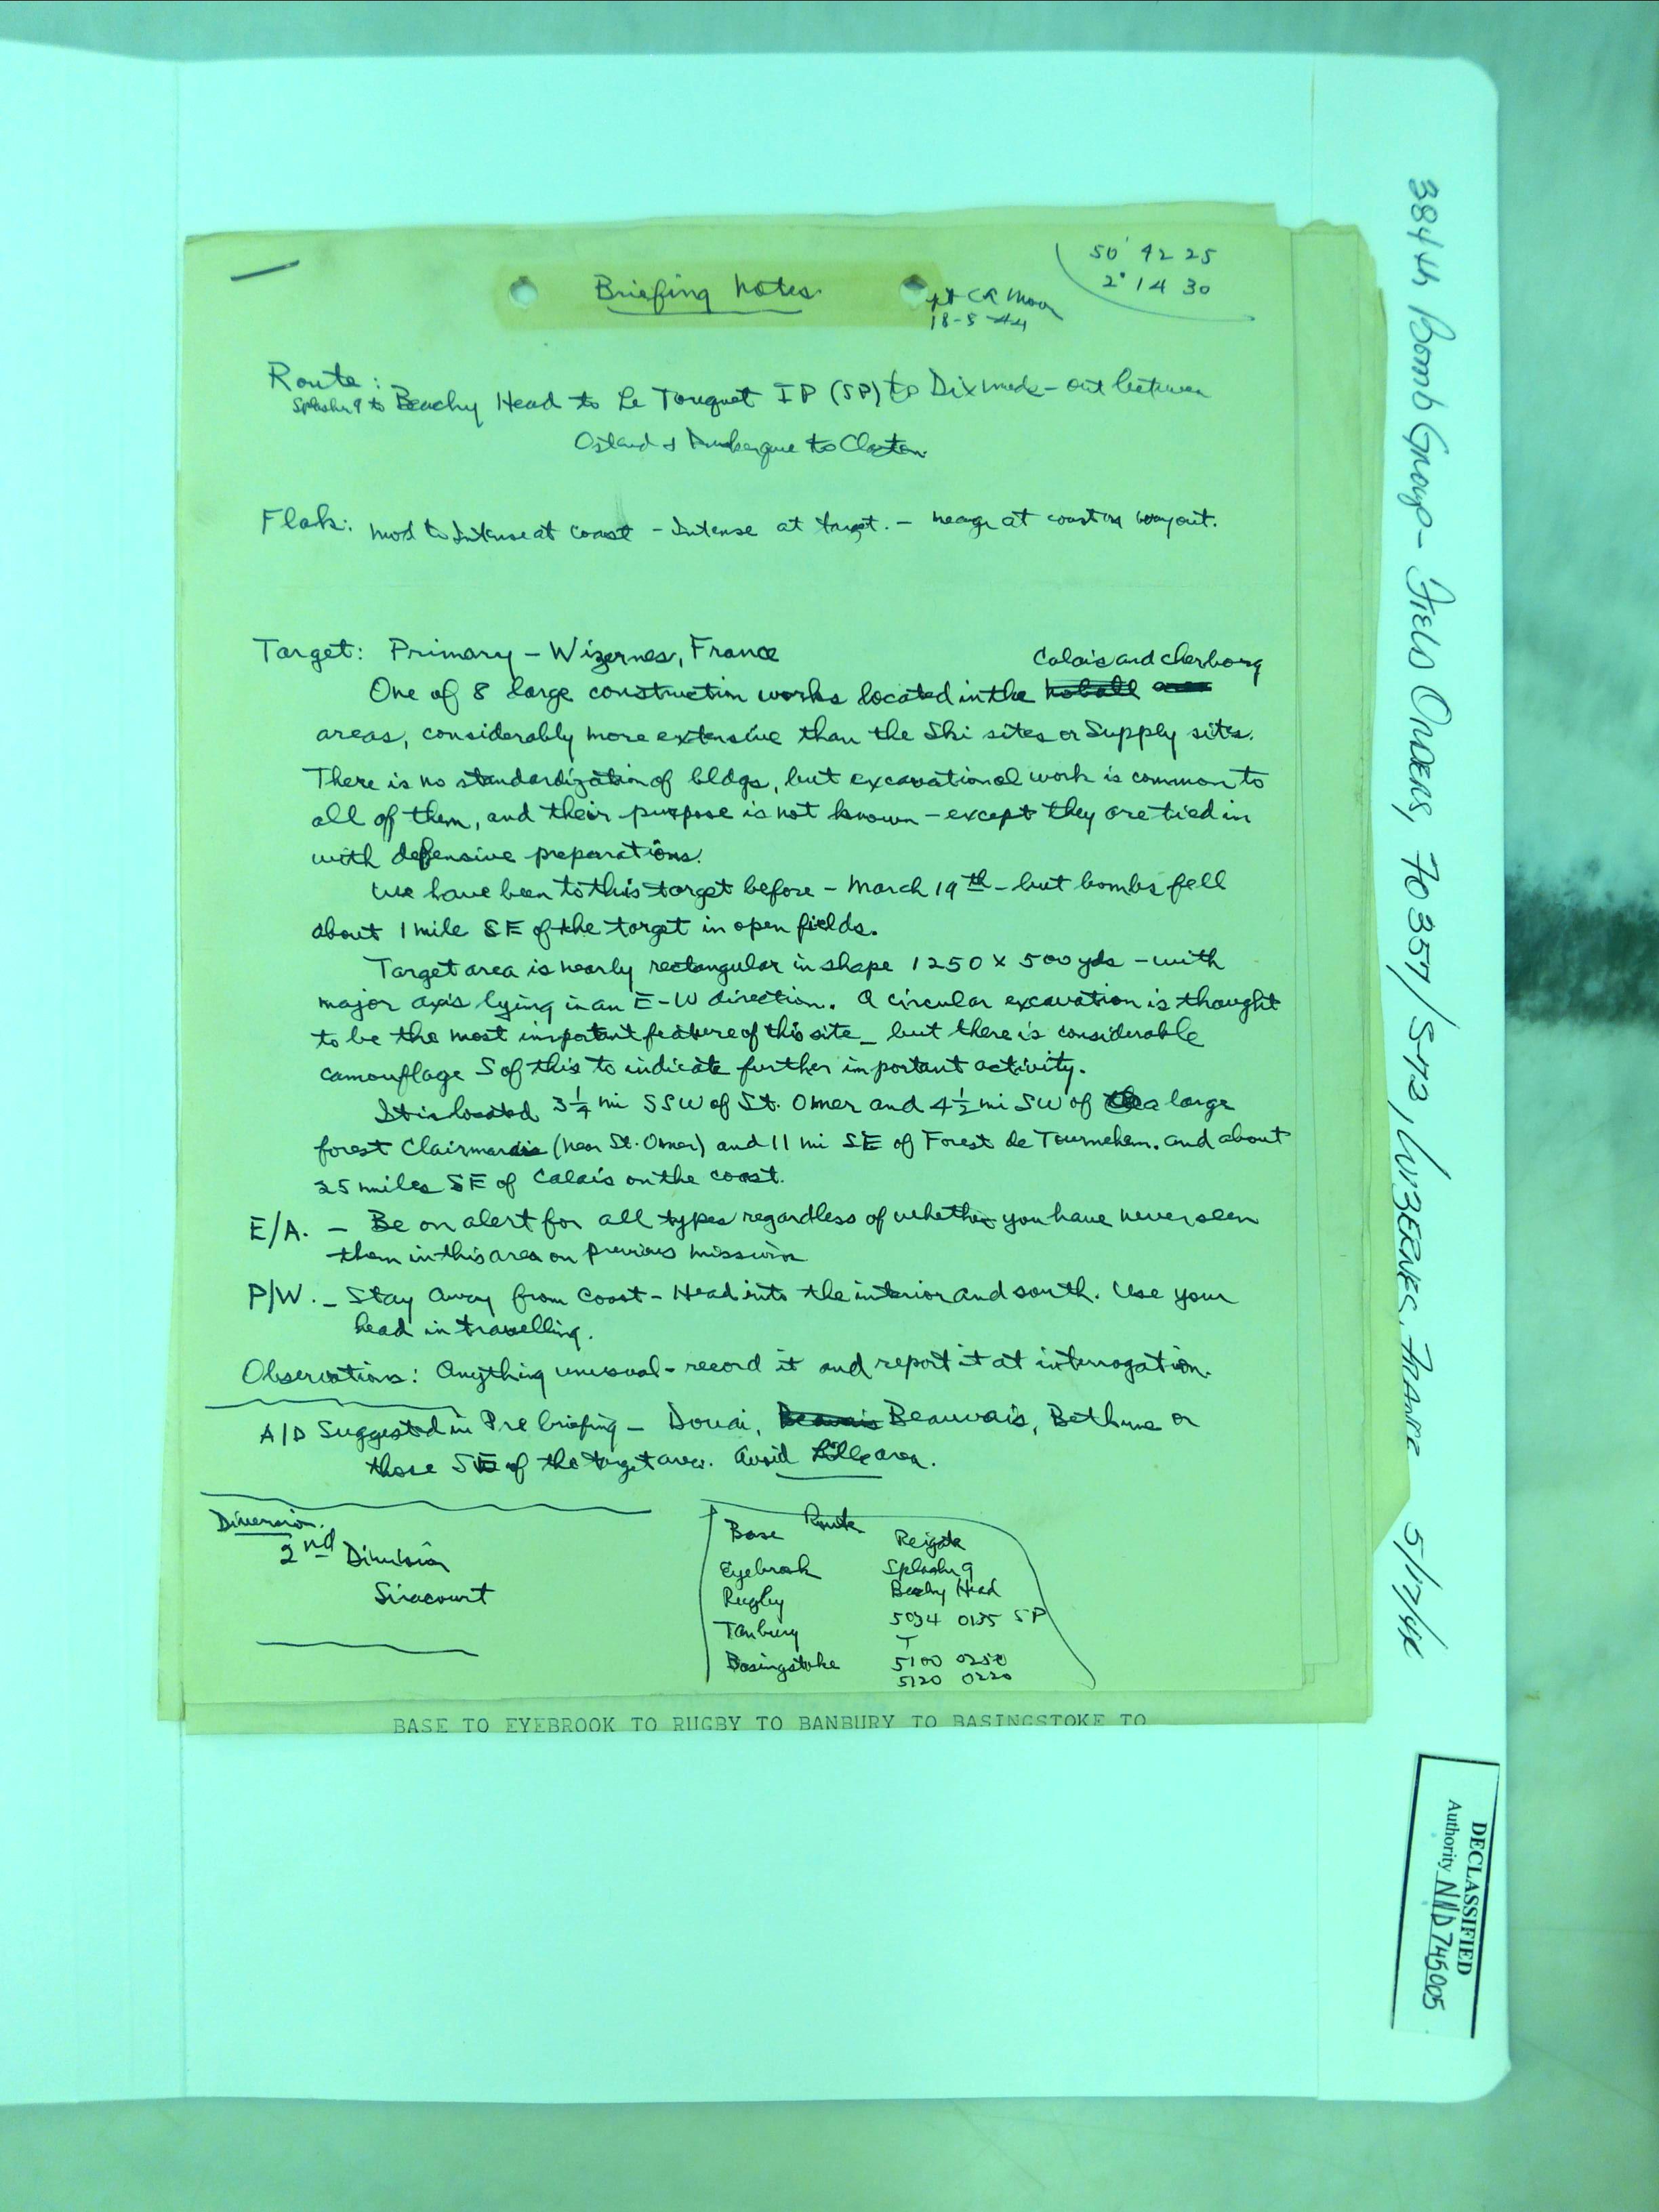 50° 42 25
2° 14 30
Briefing Notes
18-5-44
Route:
Splasher 9 to Beachy Head to Le Touquet IP (SP) to Dixmude - out between
Ostend & Dunkerque to Clacton.
Flak: Mod to Intense at coast - Intense at target. - meagre at coast on way out.
Target: Primary - Wizernes, France
Calais and Cherbourg
One of 8 large construction works located in the
areas, considerably more extensive than the Ski sites or Supply sites.
There is no standardization of bldgs, but excavational work is common to
all of them, and their purpose is not known - except they are tied in
with defensive preparations.
We have been to this target before - March 19th - but bombs fell
about 1 mile SE of the target in open fields.
Target area is nearly rectangular in shape 1250 x 500 yds - with
major axis lying in an E-W direction. A circular excavation is thought
to be the most important feature of this site - but there is considerable
camouflage S of this to indicate further important activity.
It is located 3 1/4 mi SSW of St. Omer and 4 1/2 mi SW of a large
forest Clairmarais (near St. Omer) and 11 mi SE of Forest de Tournehem. and about
25 miles SE of Calais on the coast.
E/A. - Be on alert for all types regardless of whether you have never seen
them in this area on previous mission
P/W. - Stay away from coast - Head into the interior and south. Use your
head in travelling.
Observations: Anything unusual - record it and report it at interrogation.
A/D Suggested in Pre briefing - Douai, Beauvais, Bethune or
those SE of the target area. Avoid Lille area.
Diversion.
2nd Division
Siracourt
Route
Base Reigate
Eyebrook Splasher 9
Rugby Beachy Head
Banbury 5034 0135 SP
T
Basingstoke 5100 0250
5120 0220
BASE TO EYEBROOK TO RUGBY TO BANBURY TO BASINGSTOKE TO
384th Bomb Group - Field Orders, FO 357/S-TA, WIZERNES, FRANCE 5/17/44
DECLASSIFIED
Authority NND 745005